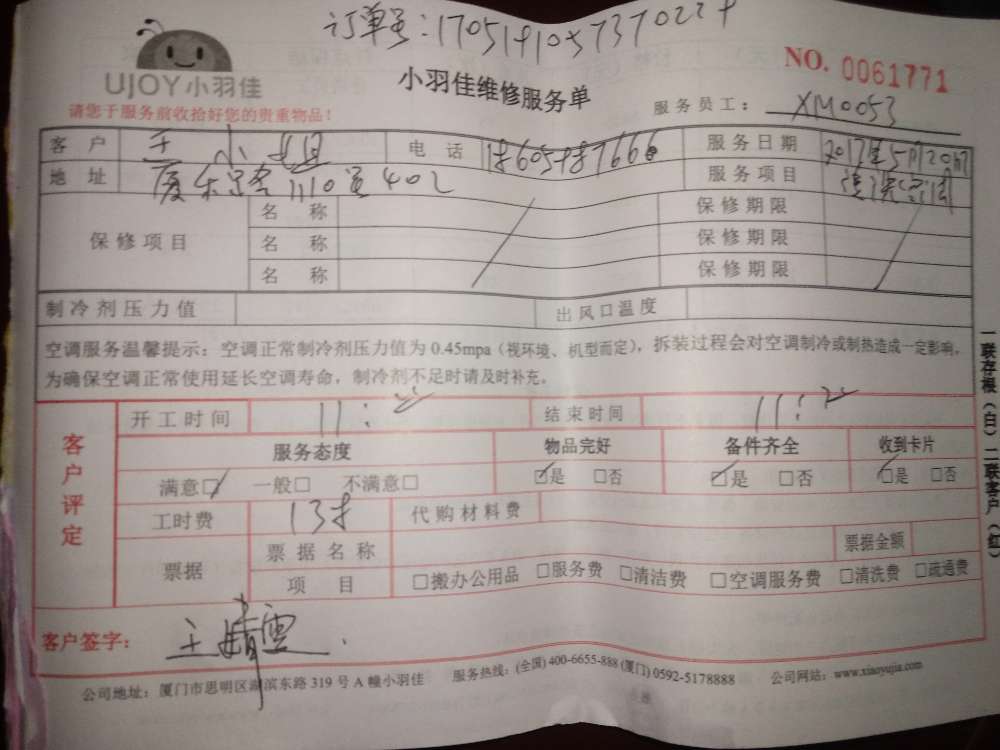 订单号:
UJOY小羽佳
小羽佳维修服务单
NO. 0061771
请您于服务前收拾好您的贵重物品!
服务员工: XM0053
客户 王小姐 电话 服务日期 2017年5月20日
地址 402 服务项目 清洗空调
保修项目 名称 保修期限
名称 保修期限
名称 保修期限
制冷剂压力值 出风口温度
空调服务温馨提示:空调正常制冷剂压力值为0.45mpa(视环境、机型而定),拆装过程会对空调制冷或制热造成一定影响,
为确保空调正常使用延长空调寿命,制冷剂不足时请及时补充。
客户评定
开工时间 11: 结束时间 11:
服务态度 物品完好 备件齐全 收到卡片
满意□ 一般□ 不满意□ □是 □否 □是 □否 □是 □否
工时费 138 代购材料费
票据 票据名称 票据金额
项目 □搬办公用品 □服务费 □清洁费 □空调服务费 □清洗费 □疏通费
客户签字: 王婧雲
公司地址:厦门市思明区湖滨东路319号A幢小羽佳 服务热线:(全国)400-6655-888(厦门)0592-5178888 公司网站:www.xiaoyujia.com
一联存根(白)二联客户(红)